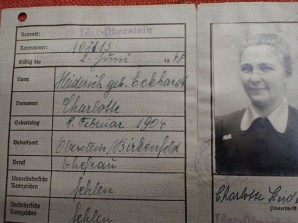 Kennort: Idar-Oberstein
Kennnummer: 101113
Gültig bis 2. Juni 19
Name Heiderich geb. Eckhardt
Vornamen Charlotte
Geburtstag 8. Februar 1904
Geburtsort Oberstein/Birkenfeld
Beruf Ehefrau
Unveränderliche Kennzeichen fehlen
Veränderliche Kennzeichen fehlen
Charlotte